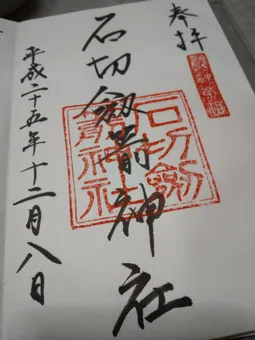 奉拝
石切劔箭神社
平成二十五年十二月八日
石切劔箭神社